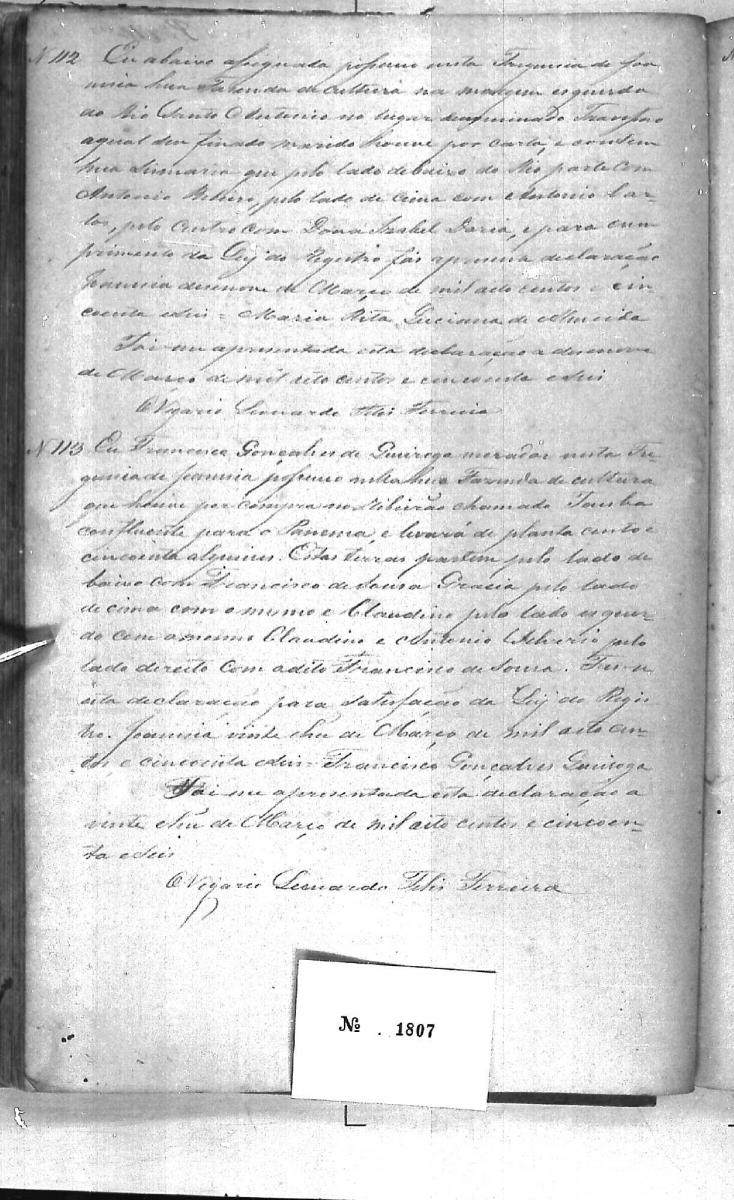 N 112 Eu abaixo assignada possuo nesta Freguesia de Joa
nesia huã Fazenda de cultura na margem esquerda
do Rio Santo Antonio no lugar denominado
a qual seu finado marido houve por carta, e contem
huã Sismaria que pelo lado de baixo do Rio parte com
Antonio Ribeiro, pelo lado de cima com Antonio Car-
los, pelo centro com Dona Izabel Daria, e para cum
primento da Ley do Registro faz a presente declaração
Joanesia desenove de Março de mil oito centos e cin-
coenta e seis = Maria Rita Luciana de Almeida
Foi me apresentada esta declaração a desenove
de Março de mil oito centos e cincoenta e seis
O Vigario Leonardo Felis Ferreira
N 113 Eu Francisco Gonçalves de Quiroga morador nesta Fre
guesia de Joanesia possuo nella huã Fazenda de cultura
que houve por compra no Ribeirão chamado
confluente para o Panema, e levará de planta cento e
cincoenta alqueires. Estas terras partem pelo lado de
baixo com Francisco de Sousa Gracia pelo lado
de cima com o mesmo e Claudino pelo lado esquer-
do com o mesmo Claudino e Antonio Silverio pelo
lado direito com o dito Francisco de Sousa.
esta declaração para satisfação da Ley do Regis
tro. Joanesia vinte e hu de Março de mil oito cen-
tos e cincoenta e seis = Francisco Gonçalves Quiroga
Foi me apresentada esta declaração a
vinte e hu de Março de mil oito centos e cincoen-
ta e seis
O Vigario Leonardo Felis Ferreira
№ . 1807